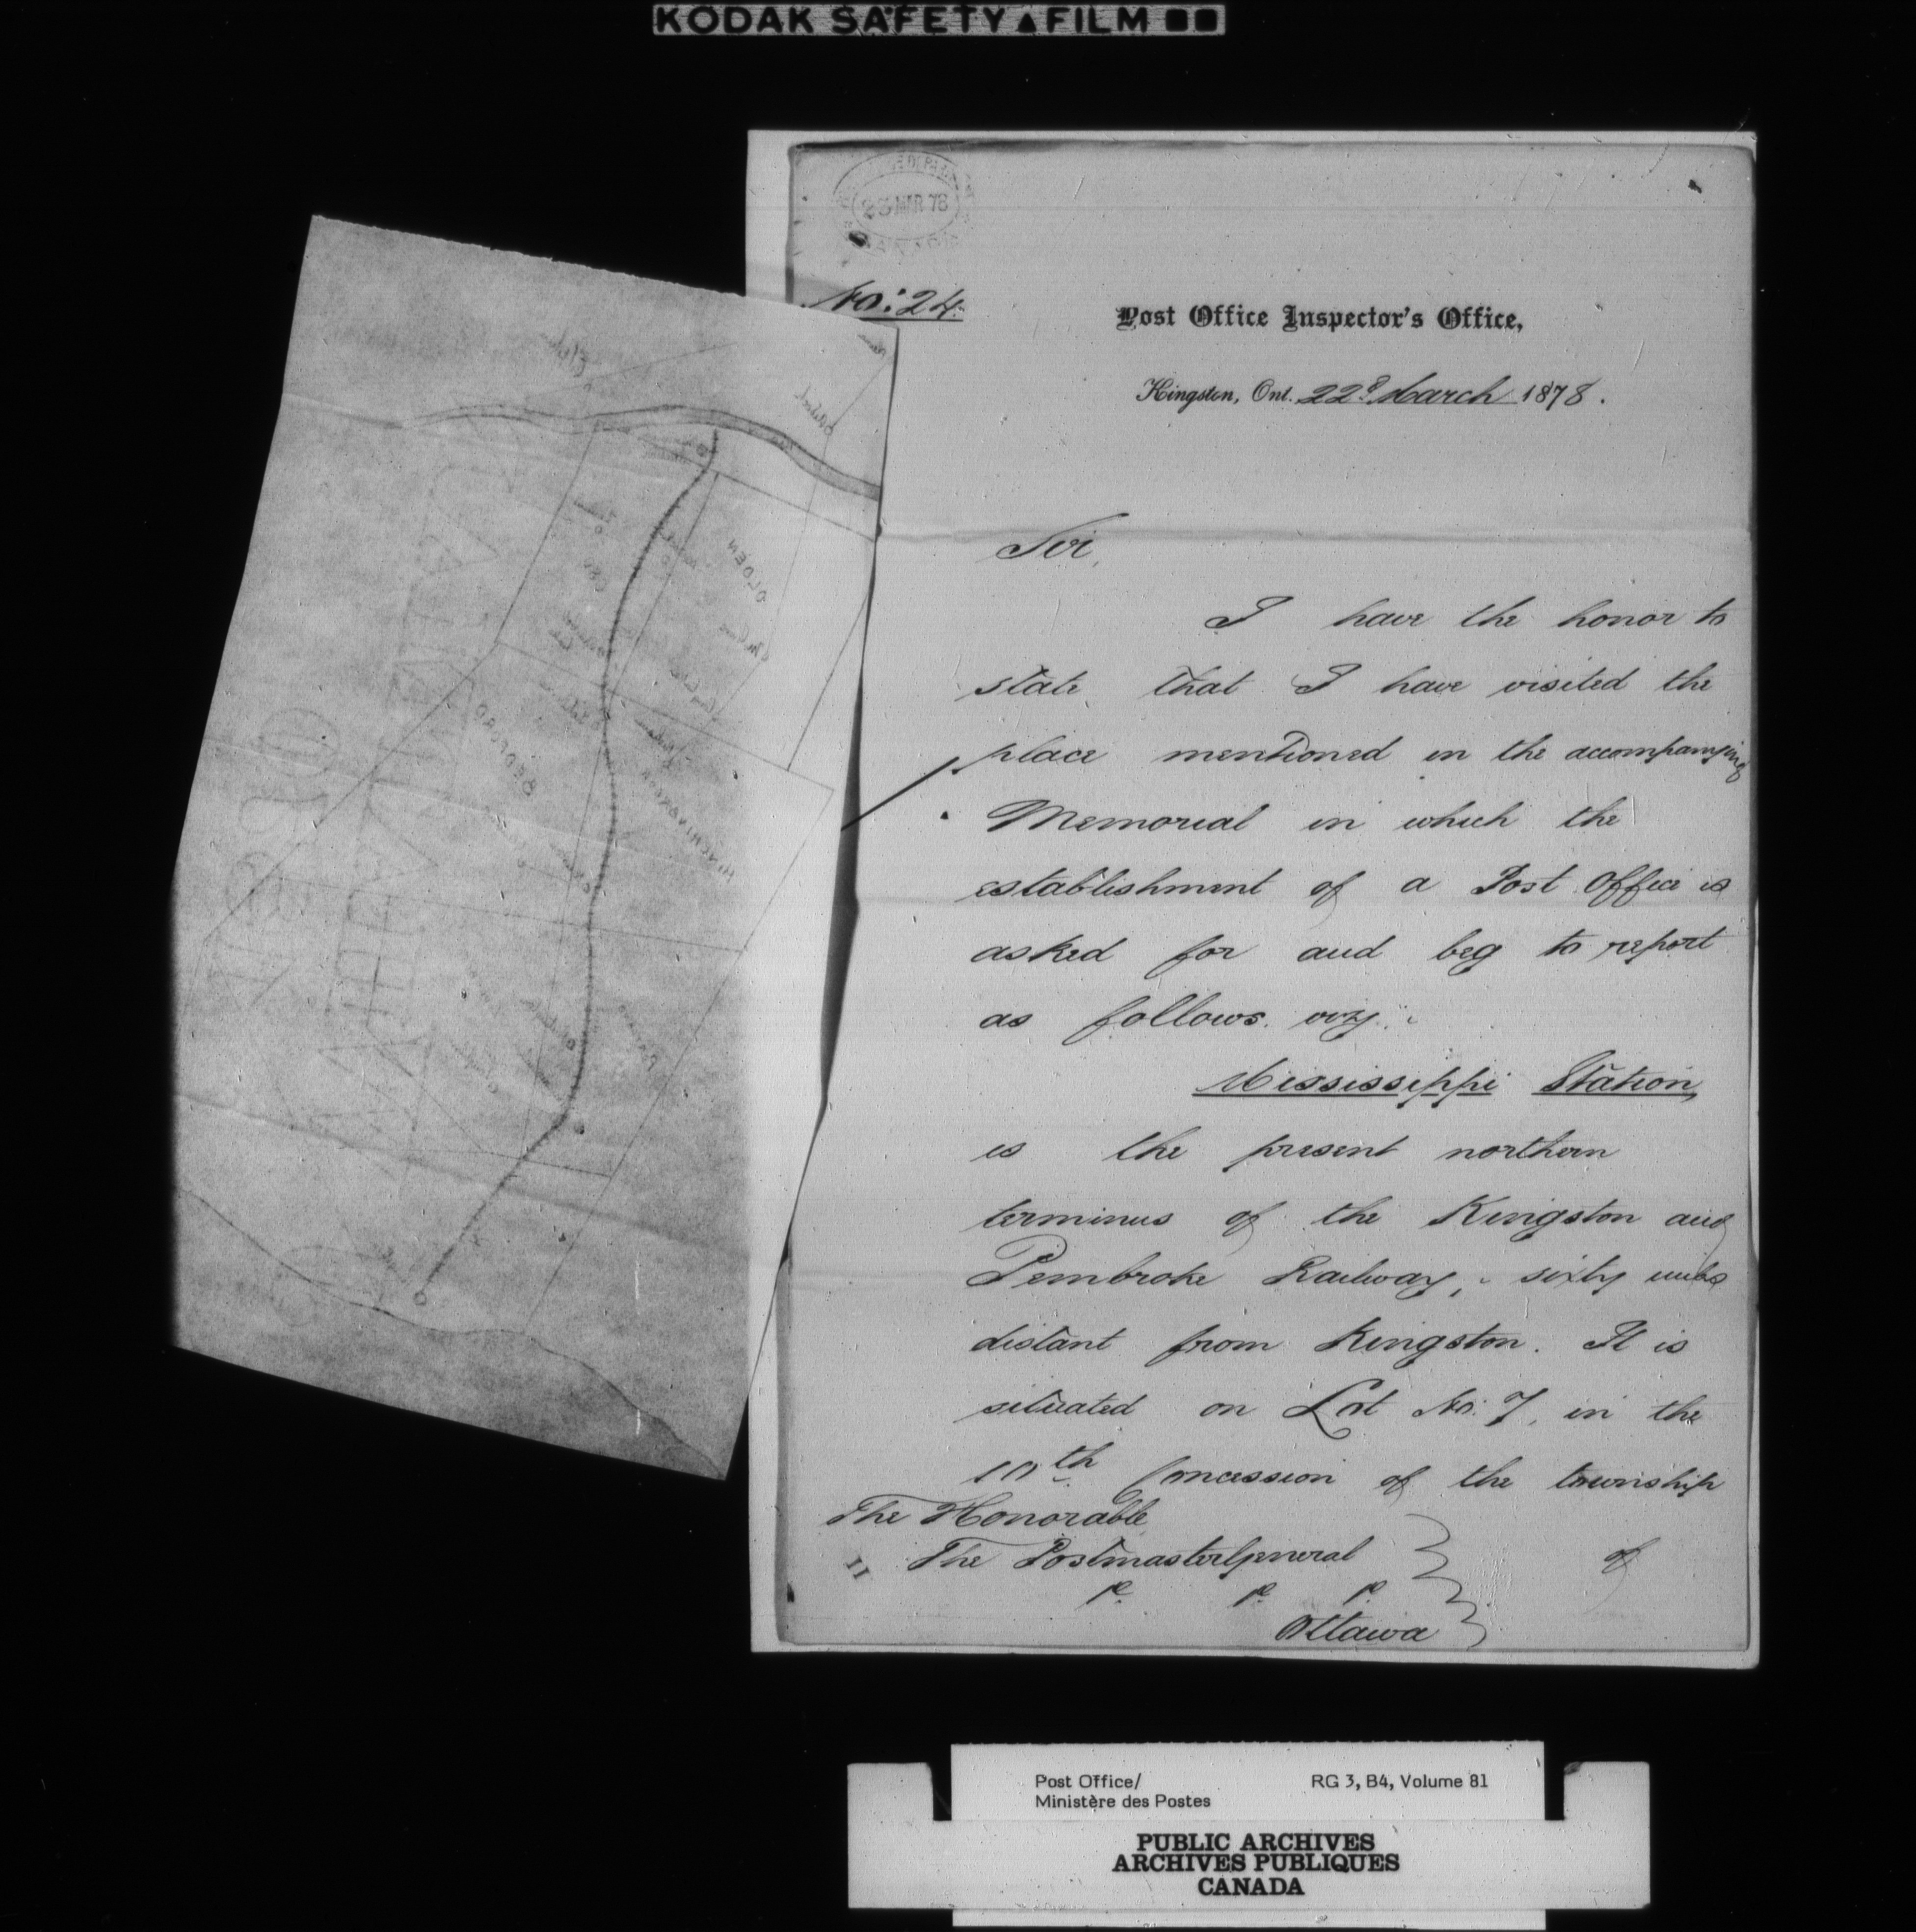 KODAK SAFETY FILM
23 MAR 78
No: 24.
Post Office Inspector's Office,
Kingston, Ont. 22d March 1878.
Sir,
I have the honor to
state that I have visited the
place mentioned in the accompanying
Memorial in which the
establishment of a Post Office is
asked for and beg to report
as follows. viz:
Mississippi Station,
is the present northern
terminus of the Kingston and
Pembroke Railway, sixty miles
distant from Kingston. It is
situated on Lot No: 7, in the
10th Concession of the township
The Honorable
The Postmaster General
of
Ottawa
OLDEN
BEDFORD
HINCHINBROOK
Post Office/
Ministère des Postes
RG 3, B4, Volume 81
PUBLIC ARCHIVES
ARCHIVES PUBLIQUES
CANADA